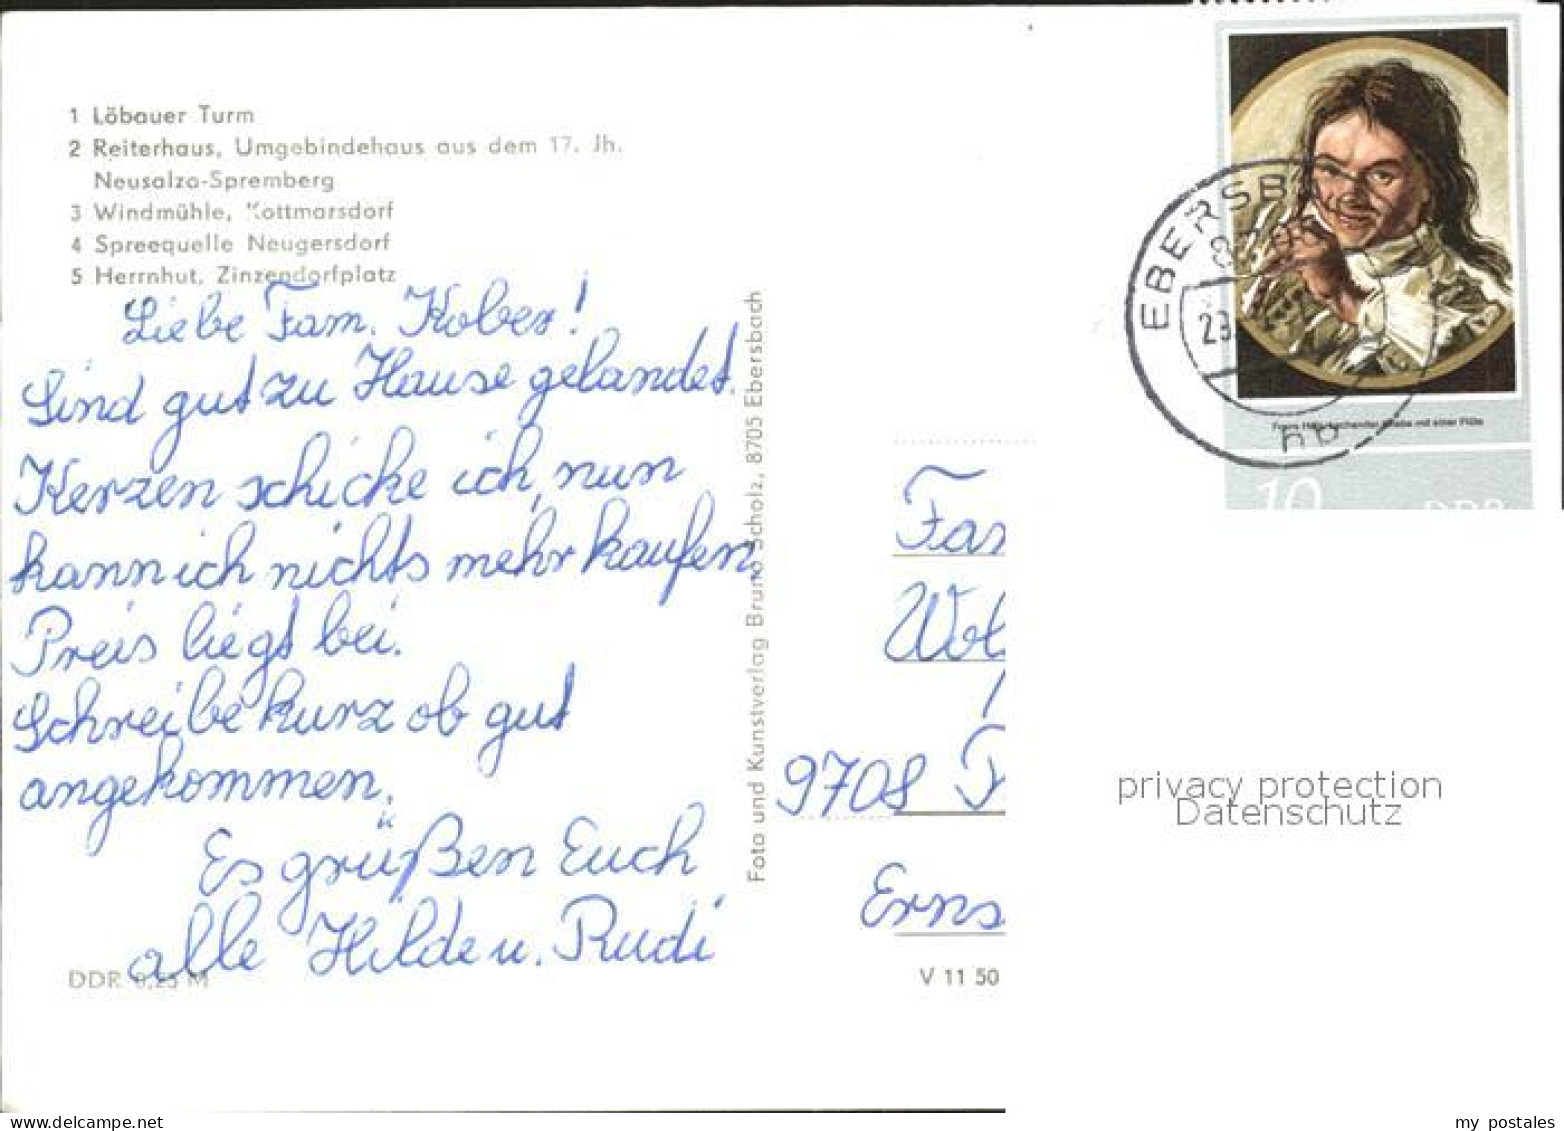 1 Löbauer Turm
2 Reiterhaus, Umgebindehaus aus dem 17. Jh.
Neusalza-Spremberg
3 Windmühle, Kottmarsdorf
4 Spreequelle Neugersdorf
5 Herrnhut, Zinzendorfplatz
Liebe Fam. Kober!
Sind gut zu Hause gelandet.
Kerzen schicke ich, nun
kann ich nichts mehr kaufen,
Preis liegt bei.
Schreibe kurz ob gut
angekommen.
Es grüßen Euch
alle Hilde u. Rudi
DDR 0,25 M
Foto und Kunstverlag Bruno Scholz, 8705 Ebersbach
EBERSB
23.
Frans Hals, Lachender Knabe mit einer Flöte
10 DDR
Fam
9708
Erns
V 11 50
privacy protection
Datenschutz
delcampe.net
my_postales